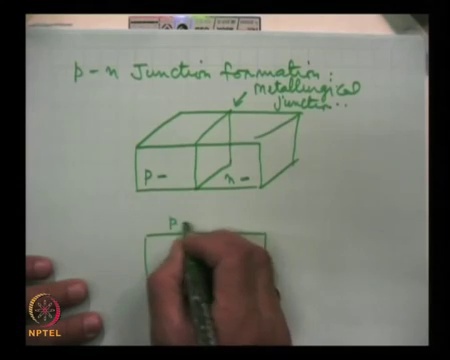 p - n Junction formation:
metallurgical
junction..
p -
n -
p
NPTEL